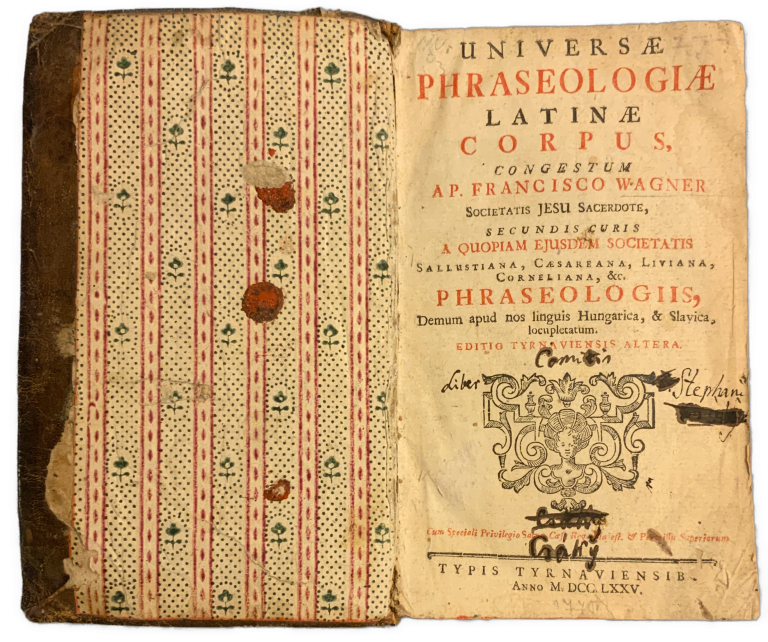 UNIVERSÆ
PHRASEOLOGIÆ
LATINÆ
CORPUS,
CONGESTUM
A P. FRANCISCO WAGNER
SOCIETATIS JESU SACERDOTE,
SECUNDIS CURIS
A QUOPIAM EJUSDEM SOCIETATIS
SALLUSTIANA, CÆSAREANA, LIVIANA,
CORNELIANA, &c.
PHRASEOLOGIIS,
Demum apud nos linguis Hungarica, & Slavica,
locupletatum.
EDITIO TYRNAVIENSIS ALTERA.
Comitis
Liber
Stephani
Csáky
Cum Speciali Privilegio & Superiorum
TYPIS TYRNAVIENSIB.
ANNO M. DCC. LXXV.